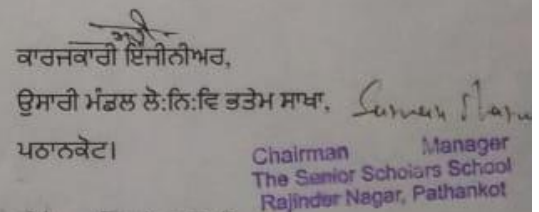 ਕਾਰਜਕਾਰੀ ਇੰਜੀਨੀਅਰ,
ਉਸਾਰੀ ਮੰਡਲ ਲੋ:ਨਿ:ਵਿ ਭਤੇਮ ਸਾਖਾ,
ਪਠਾਨਕੋਟ।
Chairman Manager
The Senior Scholars School
Rajinder Nagar, Pathankot